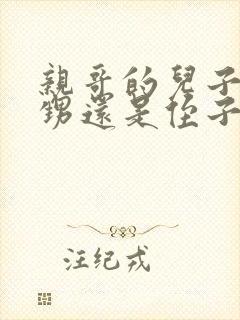 親哥的兒子
甥還是侄子
汪纪戎